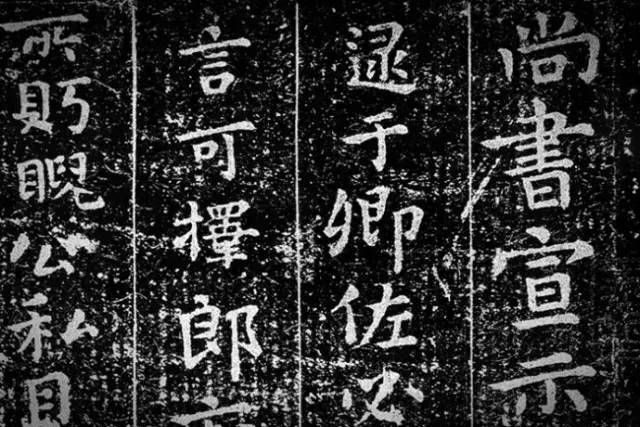 尚書宣示
逮于卿佐必
言可擇郎
所盱睨公私見